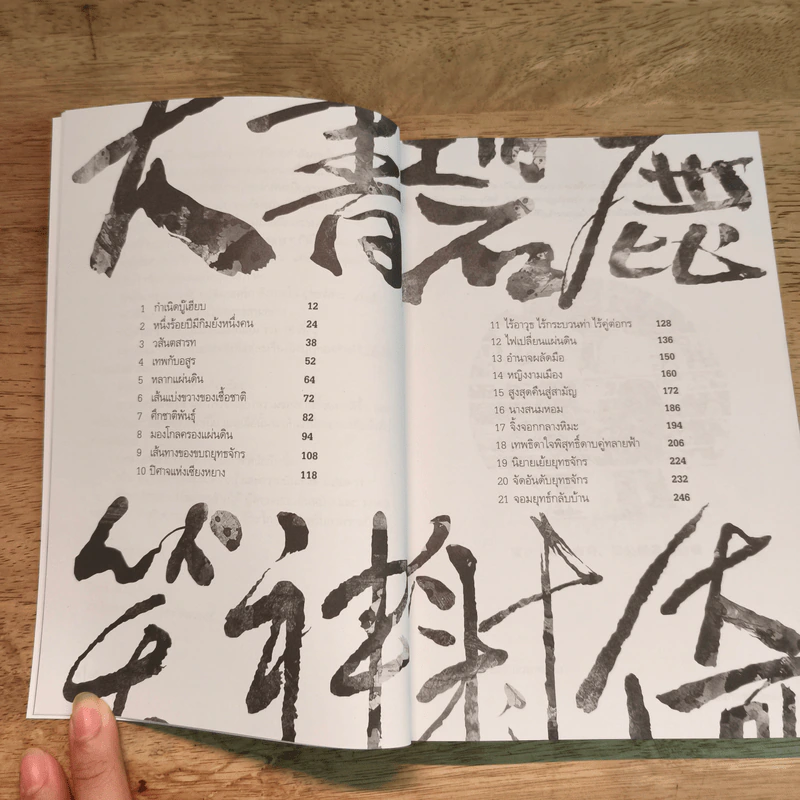 大書碧鹿
1 กำเนิดบู๊เฮียบ 12
2 หนึ่งร้อยปีมีกิมย้งหนึ่งคน 24
3 วสันตสารท 38
4 เทพกับอสูร 52
5 หลากแผ่นดิน 64
6 เส้นแบ่งขวางของเชื้อชาติ 72
7 ศึกชาติพันธุ์ 82
8 มองโกลครองแผ่นดิน 94
9 เส้นทางของขบถยุทธจักร 108
10 ปีศาจแห่งเซียงหยาง 118
11 ไร้อาวุธ ไร้กระบวนท่า ไร้คู่ต่อกร 128
12 ไฟเปลี่ยนแผ่นดิน 136
13 อำนาจผลัดมือ 150
14 หญิงงามเมือง 160
15 สูงสุดคืนสู่สามัญ 172
16 นางสนมหอม 186
17 จิ้งจอกกลางหิมะ 194
18 เทพธิดาใจพิสุทธิ์ดาบคู่ทลายฟ้า 206
19 นิยายเย้ยยุทธจักร 224
20 จัดอันดับยุทธจักร 232
21 จอมยุทธ์กลับบ้าน 246
笑神俠